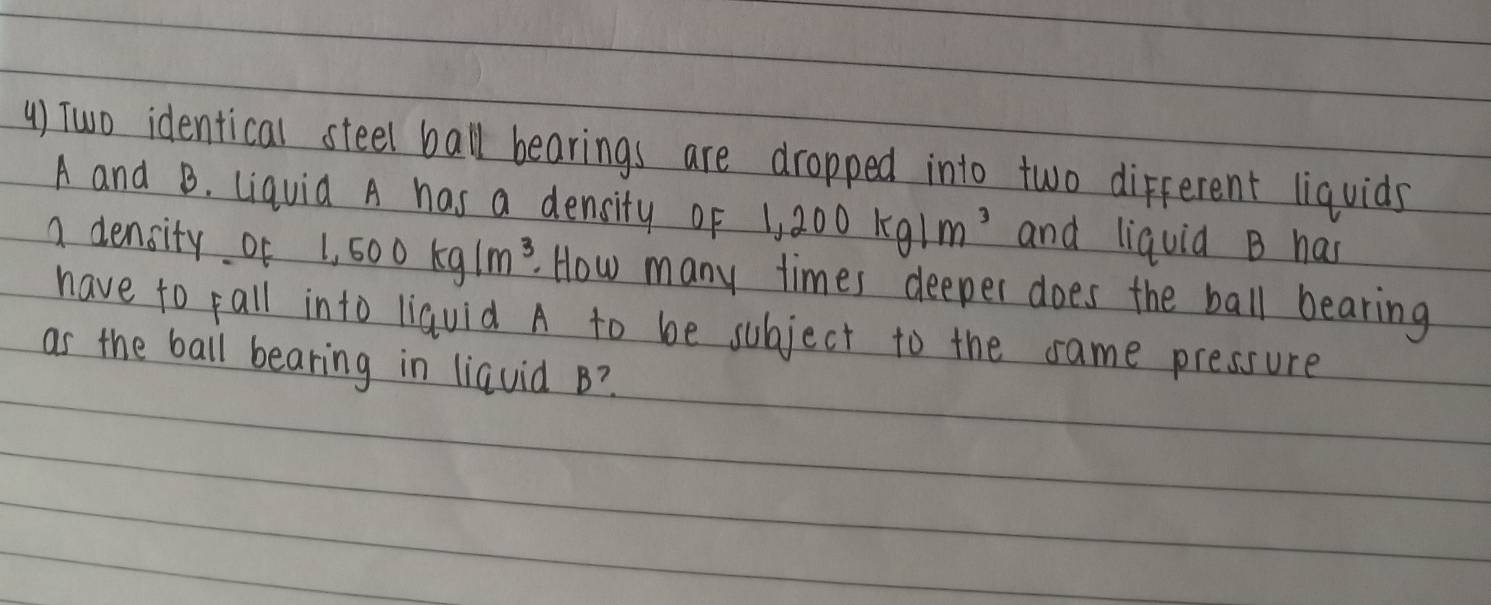 4) Two identical steel ball bearings are dropped into two different liquids
A and B. Liquid A has a density of 1,200 kg/m³ and liquid B has
a density of 1,500 kg/m³. How many times deeper does the ball bearing
have to fall into liquid A to be subject to the same pressure
as the ball bearing in liquid B?